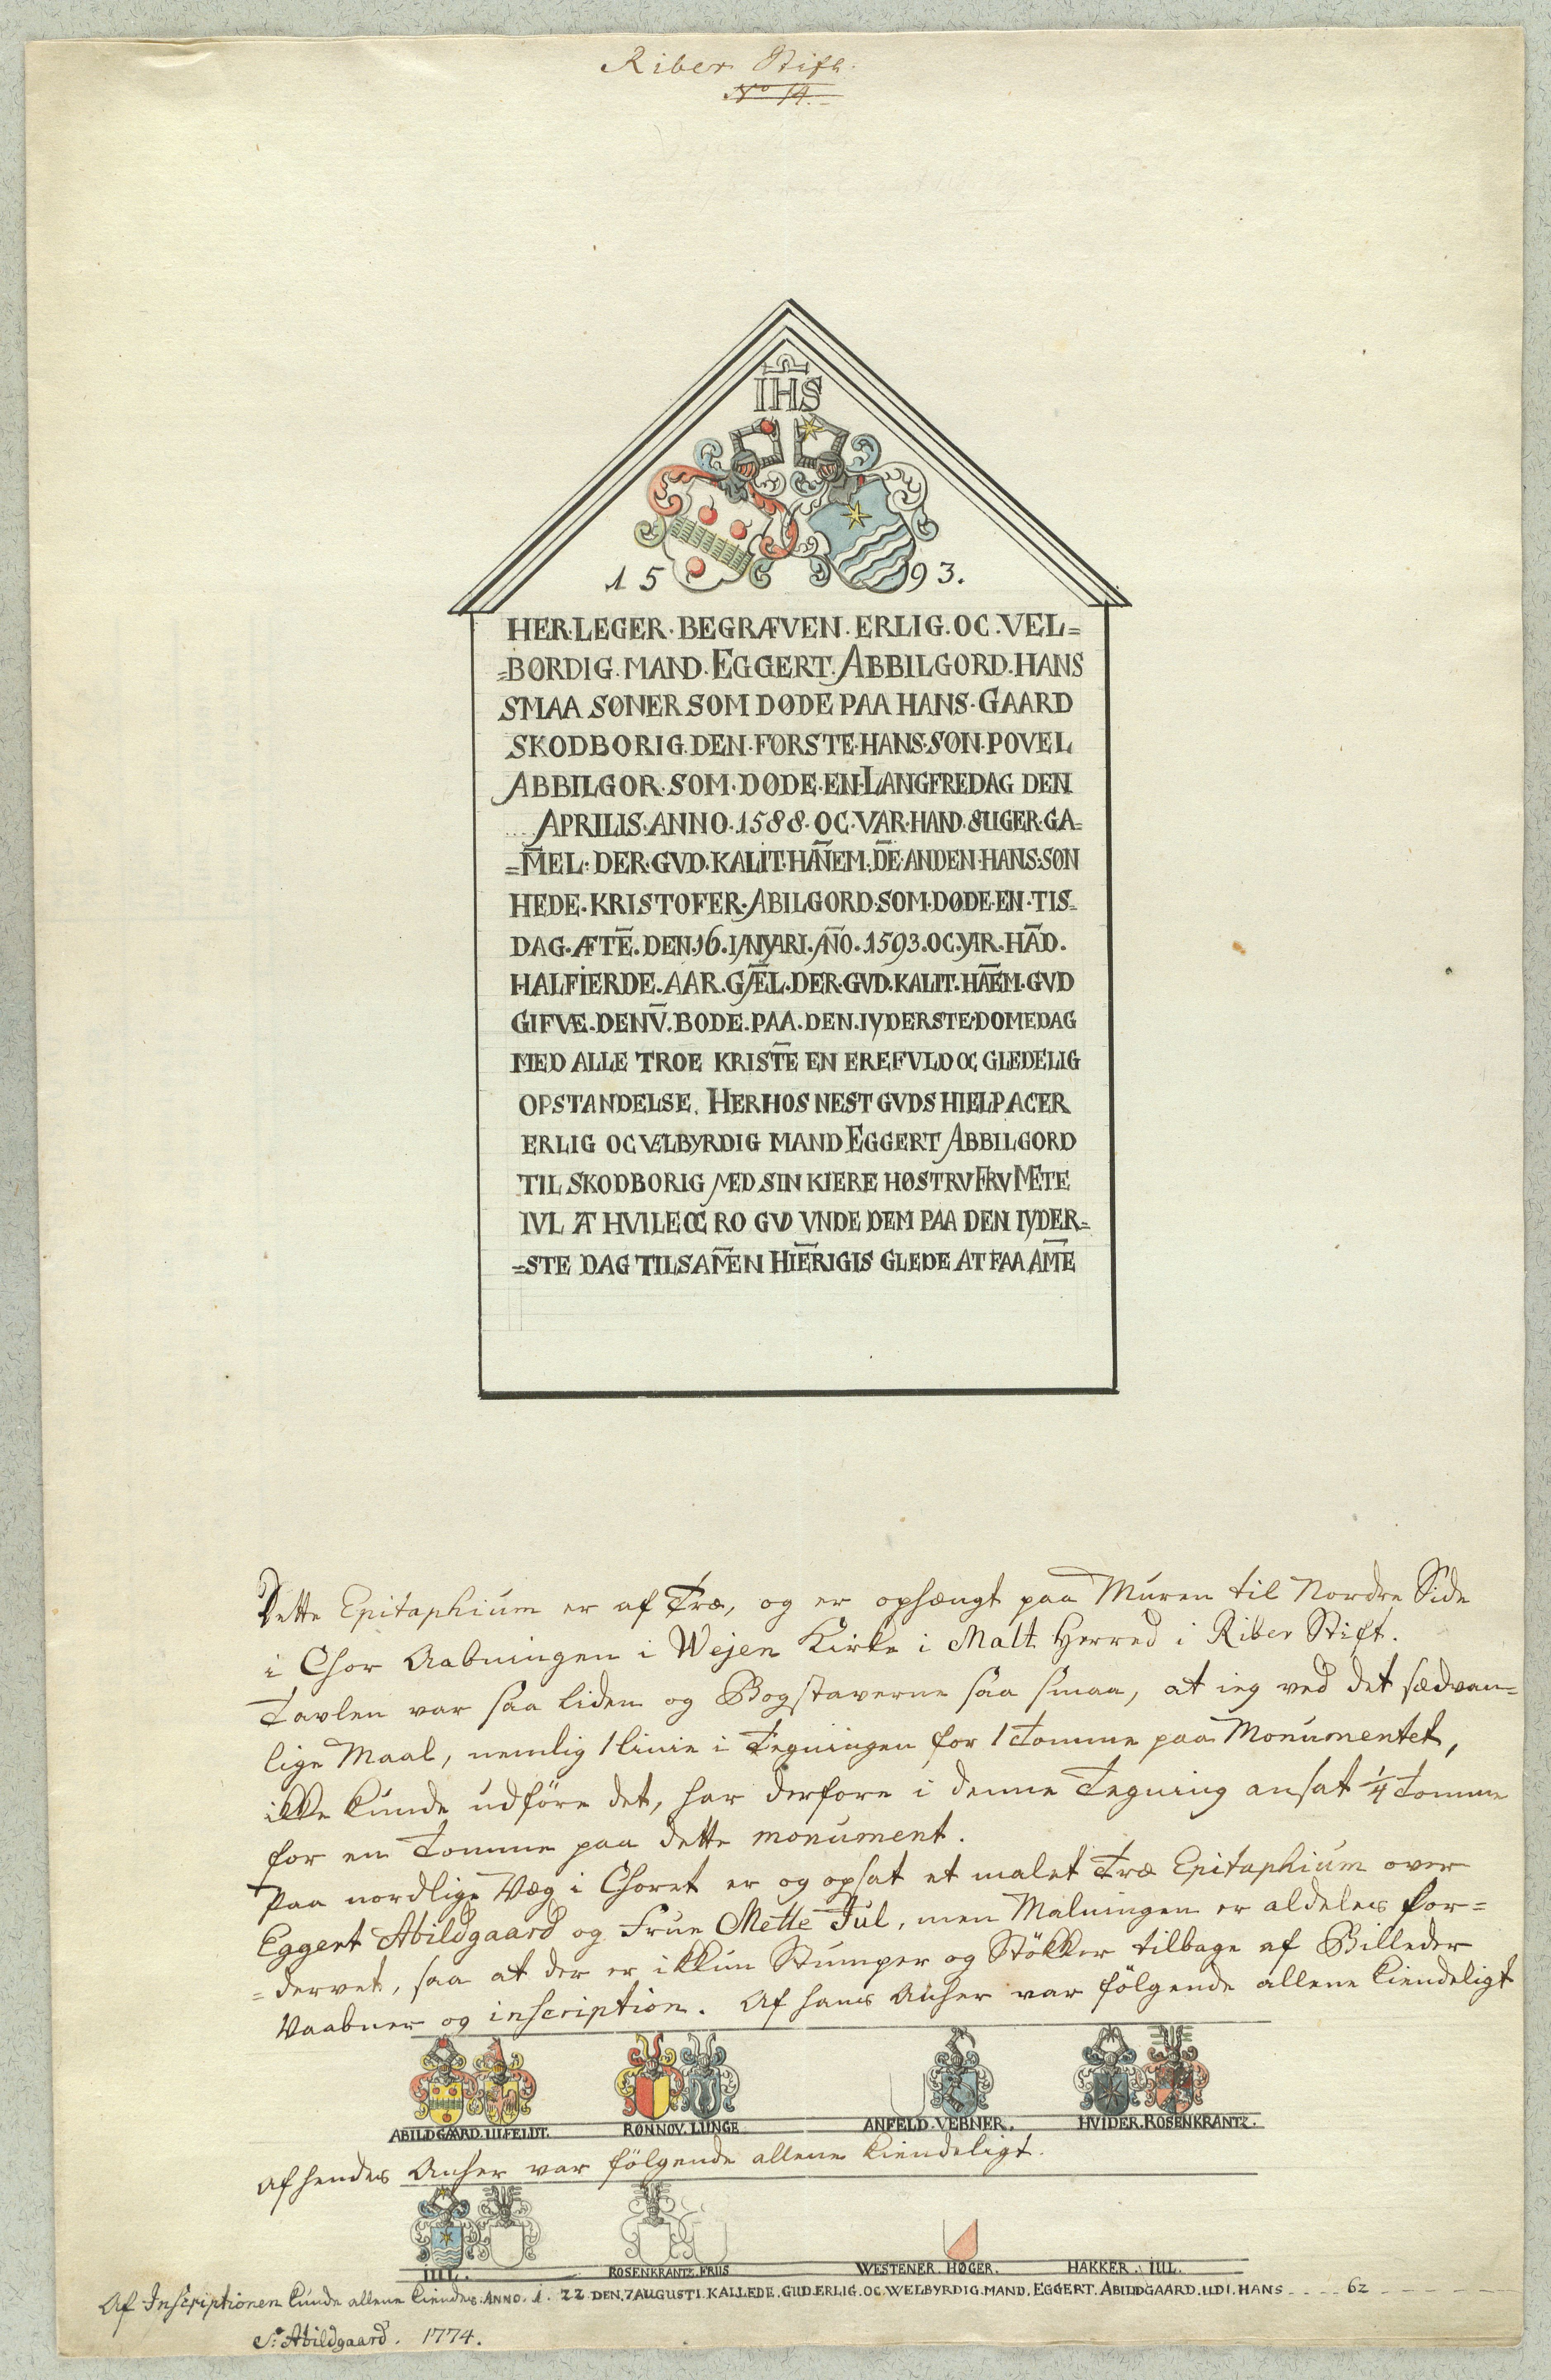 Riber Stift.
No 14.
IHS
15 93.
HER·LEGER·BEGRÆVEN·ERLIG·OC·VEL=
=BØRDIG·MAND·EGGERT·ABBILGORD·HANS
SMAA SØNER SOM DØDE PAA HANS·GAARD
SKODBORIG·DEN·FØRSTE·HANS·SØN·POVEL
ABBILGOR·SOM·DØDE·EN·LANGFREDAG DEN
... APRILIS·ANNO·1588·OC·VAR·HAND·8UGER·GA=
=M̄EL·DER·GVD·KALIT·HĀNEM·DĒ·ANDEN·HANS·SØN
HEDE·KRISTOFER·ABILGORD·SOM·DØDE·EN·TIS=
DAG·ÆTĒ·DEN·16·IANVARI·AÑO·1593·OC·VAR·HĀD.
HALFIERDE·AAR·GĀEL·DER·GVD·KALIT·HĀEM·GVD
GIFVÆ·DENV̄·BODE·PAA·DEN·IYDERSTE·DOMEDAG
MED ALLE TROE KRISTĒ EN EREFVLD OC GLEDELIG
OPSTANDELSE. HERHOS NEST GVDS HIELP ACER
ERLIG OC VELBYRDIG MAND EGGERT ABBILGORD
TIL SKODBORIG MED SIN KIERE HØSTRV FRV METE
IVL AT HVILE OC RO GVD VNDE DEM PAA DEN IYDER=
=STE DAG TILSAM̄EN HIĒRIGIS GLEDE AT FAA AM̄E
Dette Epitaphium er af Træ, og er ophængt paa Muren til Nordre Side
i Chor Aabningen i Wejen Kirke i Malt Herred i Riber Stift.
Tavlen var saa liden og Bogstaverne saa smaa, at ieg ved det sædvan=
lige Maal, nemlig 1 linie i Tegningen for 1 Tomme paa Monumentet,
ikke kunde udføre det, har derfore i denne Tegning ansat 1/4 Tomme
for en Tomme paa dette monument.
Paa nordlige Væg i Choret er og opsat et malet Træ Epitaphium over
Eggert Abildgaard og Frue Mette Jul, men Malningen er aldeles for=
=dervet, saa at der er ikkun Stumper og Støkker tilbage af Billeder
Vaabner og inscription. Af hans Anher var følgende allene kiendeligt
ABILDGAARD. ULFELDT. RØNNOV. LUNGE ANFELD. VEBNER. HVIDER. ROSENKRANTZ.
af hendes Anher var følgende allene kiendeligt.
IUL. ROSENKRANTZ. FRIIS WESTENER. HØGER. HAKKER. IUL.
Af Inscriptionen kunde allene kiendes. ANNO. 1. 22 DEN. 7 AUGUSTI. KALLEDE. GUD. ERLIG. OC. WELBYRDIG. MAND. EGGERT. ABILDGAARD. UDI. HANS - - - - 62 - - - -
S: Abildgaard. 1774.